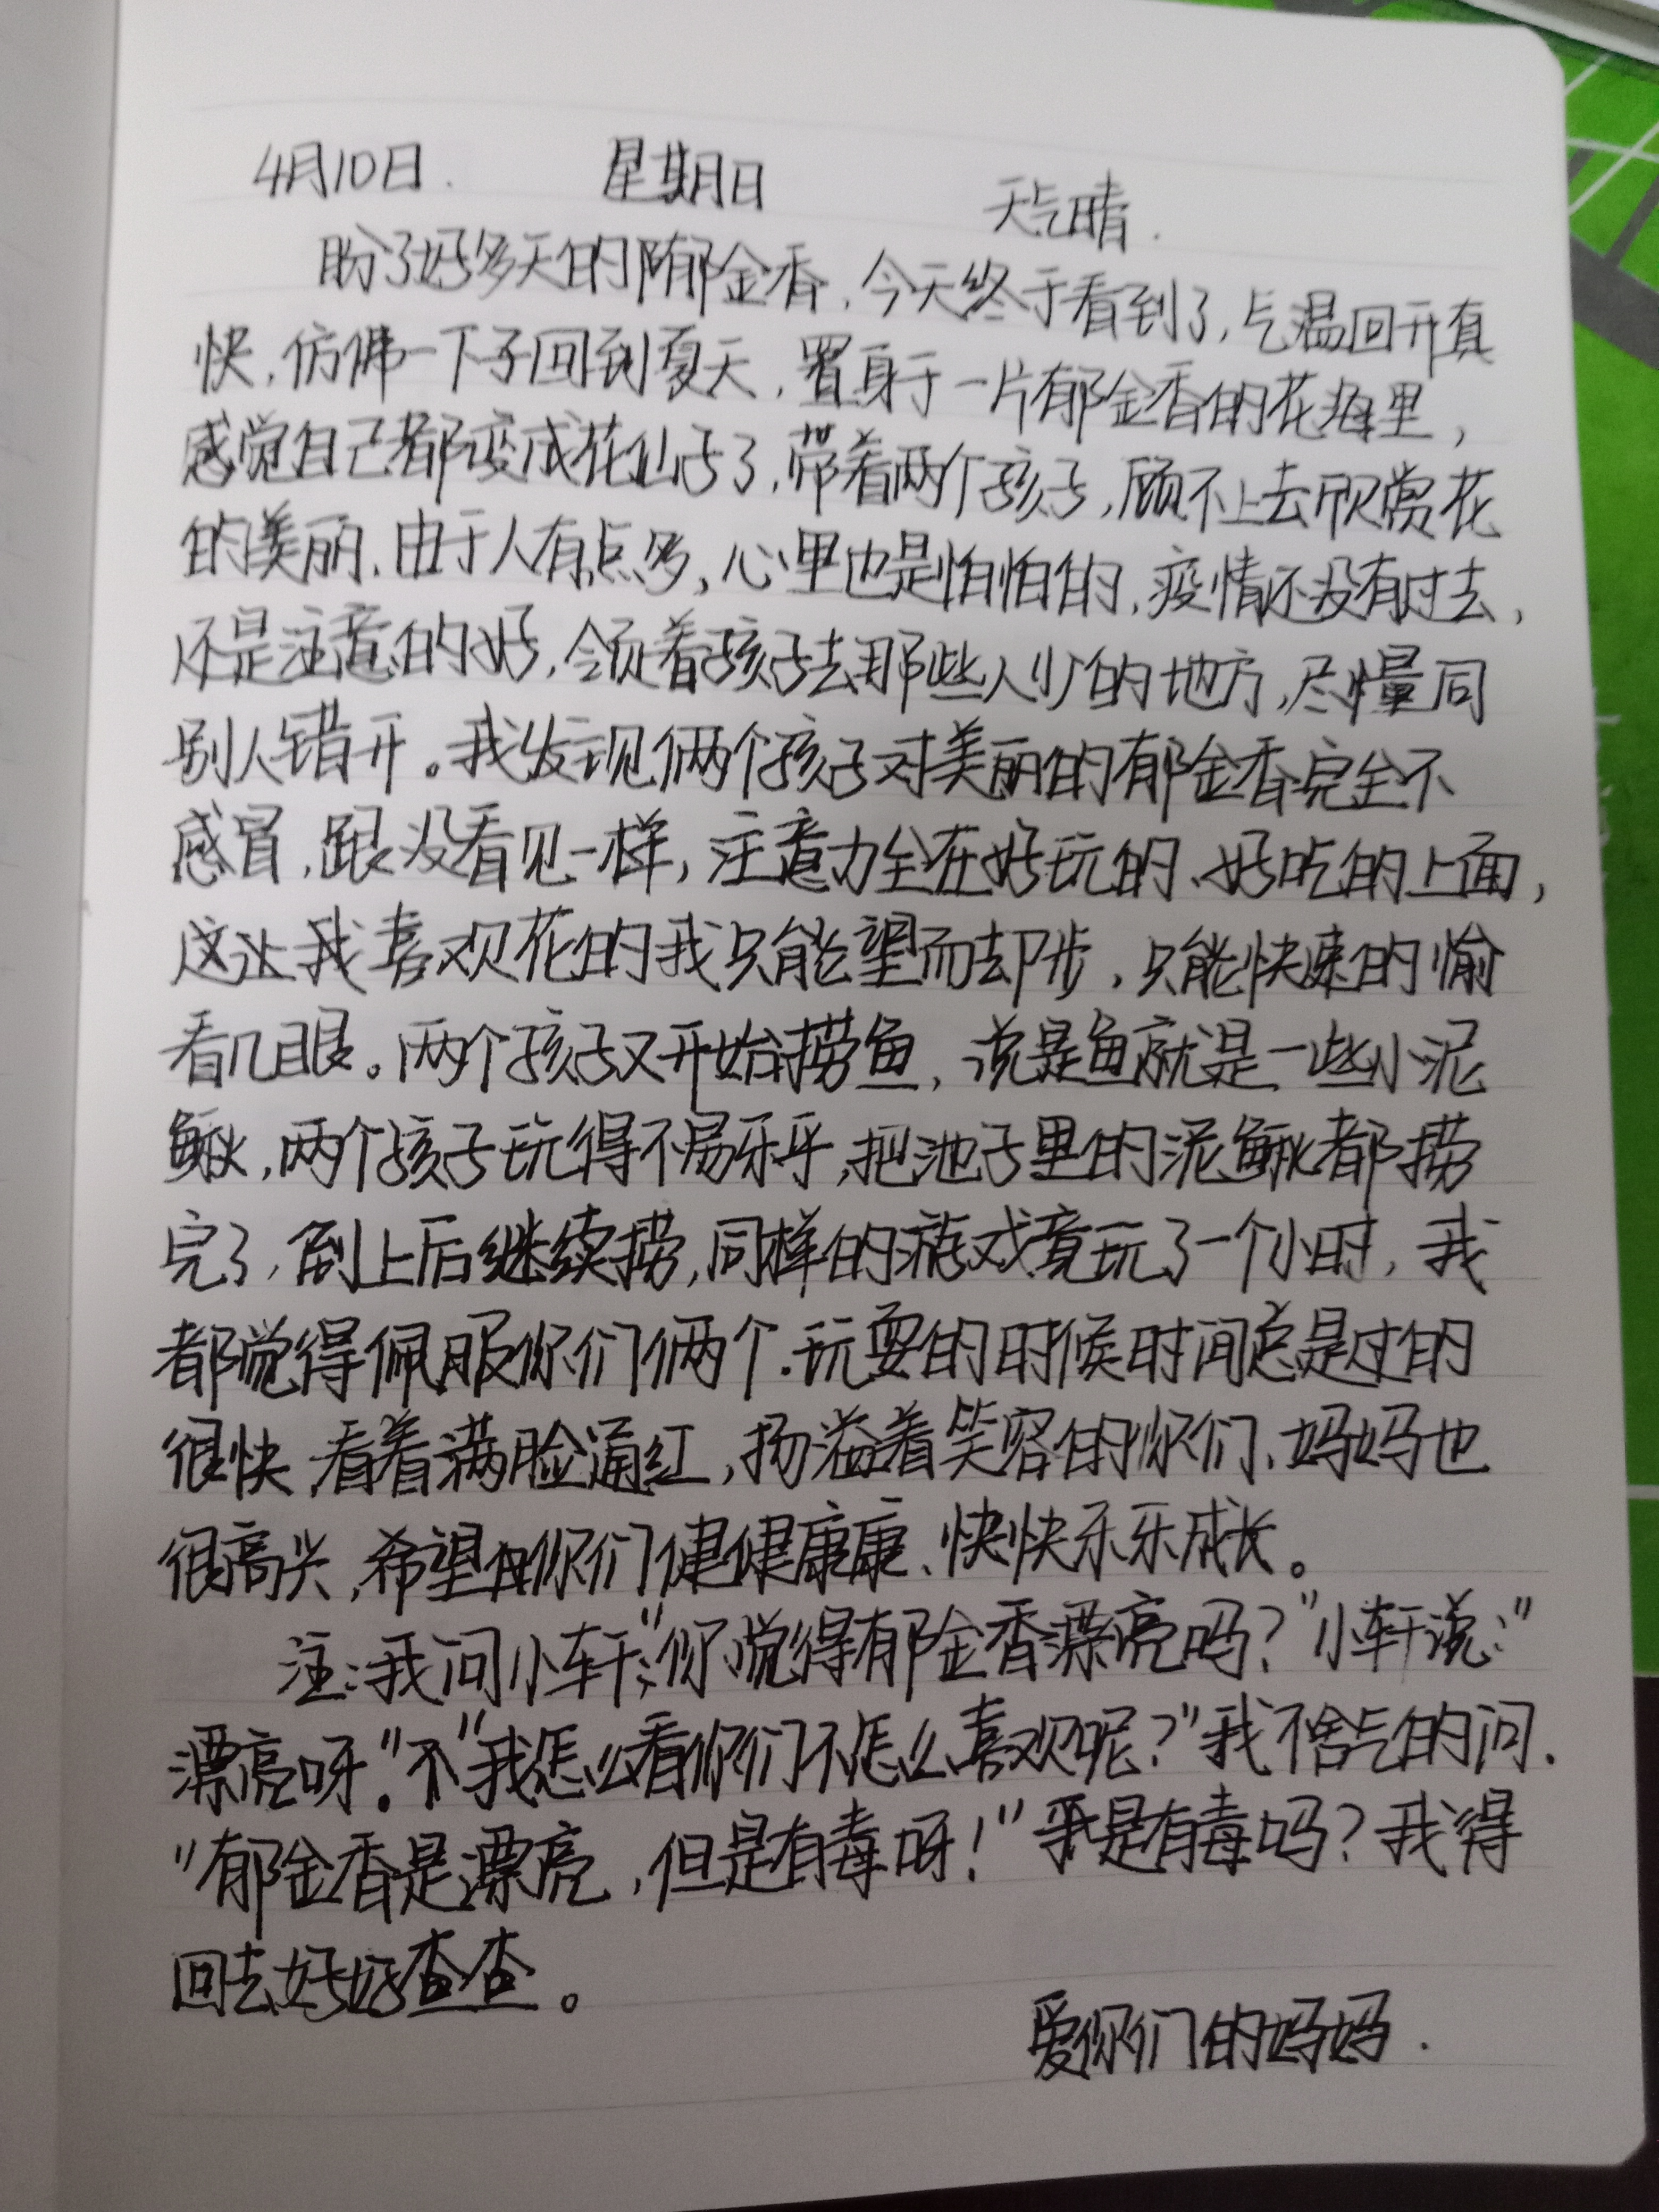 4月10日. 星期日 天气晴.
盼了好多天的郁金香,今天终于看到了,气温回升真
快,仿佛一下子回到夏天,置身于一片郁金香的花海里,
感觉自己都变成花仙子了,带着两个孩子,顾不上去欣赏花
的美丽.由于人有点多,心里也是怕怕的,疫情还没有过去,
还是注意的好,领着孩子去那些人少的地方,尽量同
别人错开。我发现俩个孩子对美丽的郁金香完全不
感冒,跟没看见一样,注意力全在好玩的、好吃的上面,
这让我喜欢花的我只能望而却步,只能快速的愉
看几眼。两个孩子又开始捞鱼,说是鱼就是一些小泥
鳅,两个孩子玩得不易乐乎,把池子里的泥鳅都捞
完了,倒上后继续捞,同样的游戏竟玩了一个小时,我
都觉得佩服你们俩个.玩耍的时候时间总是过的
很快,看着满脸通红,扬溢着笑容的你们、妈妈也
很高兴,希望你们健健康康、快快乐乐成长。
注:我问小轩:"你觉得郁金香漂亮吗?"小轩说:"
漂亮呀。"不"我怎么看你们不怎么喜欢呢?"我不舍气的问.
"郁金香是漂亮,但是有毒呀!"是有毒吗?我得
回去好好查查。
爱你们的妈妈.